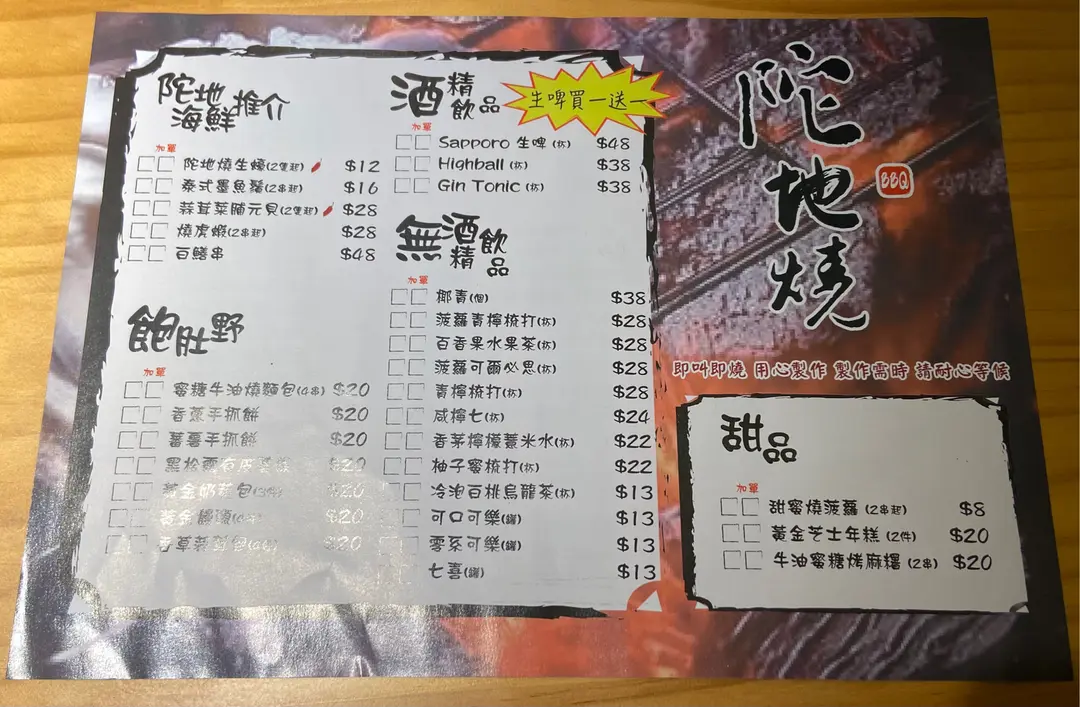 陀地
海鮮推介
加單
陀地燒生蠔(2隻起) $12
泰式墨魚鬚(2串起) $16
蒜茸菜脯元貝(2隻起) $28
燒虎蝦(2串起) $28
白鱔串 $48
飽肚野
加單
蜜糖牛油燒麵包(4串) $20
香蔥手抓餅 $20
蕃薯手抓餅 $20
黑松露 $20
黃金奶 包 $20
黃金饅頭 $20
香草蒜蓉包 $20
酒精飲品
生啤買一送一
加單
Sapporo 生啤 (杯) $48
Highball (杯) $38
Gin Tonic (杯) $38
無酒精飲品
加單
椰青(個) $38
菠蘿青檸梳打(杯) $28
百香果水果茶(杯) $28
菠蘿可爾必思(杯) $28
青檸梳打(杯) $28
咸檸七(杯) $24
香茅檸檬薏米水(杯) $22
柚子蜜梳打(杯) $22
冷泡白桃烏龍茶(杯) $13
可口可樂(罐) $13
零系可樂(罐) $13
七喜(罐) $13
陀地燒
BBQ
即叫即燒 用心製作 製作需時 請耐心等候
甜品
加單
甜蜜燒菠蘿 (2串起) $8
黃金芝士年糕 (2件) $20
牛油蜜糖烤麻糬 (2串) $20